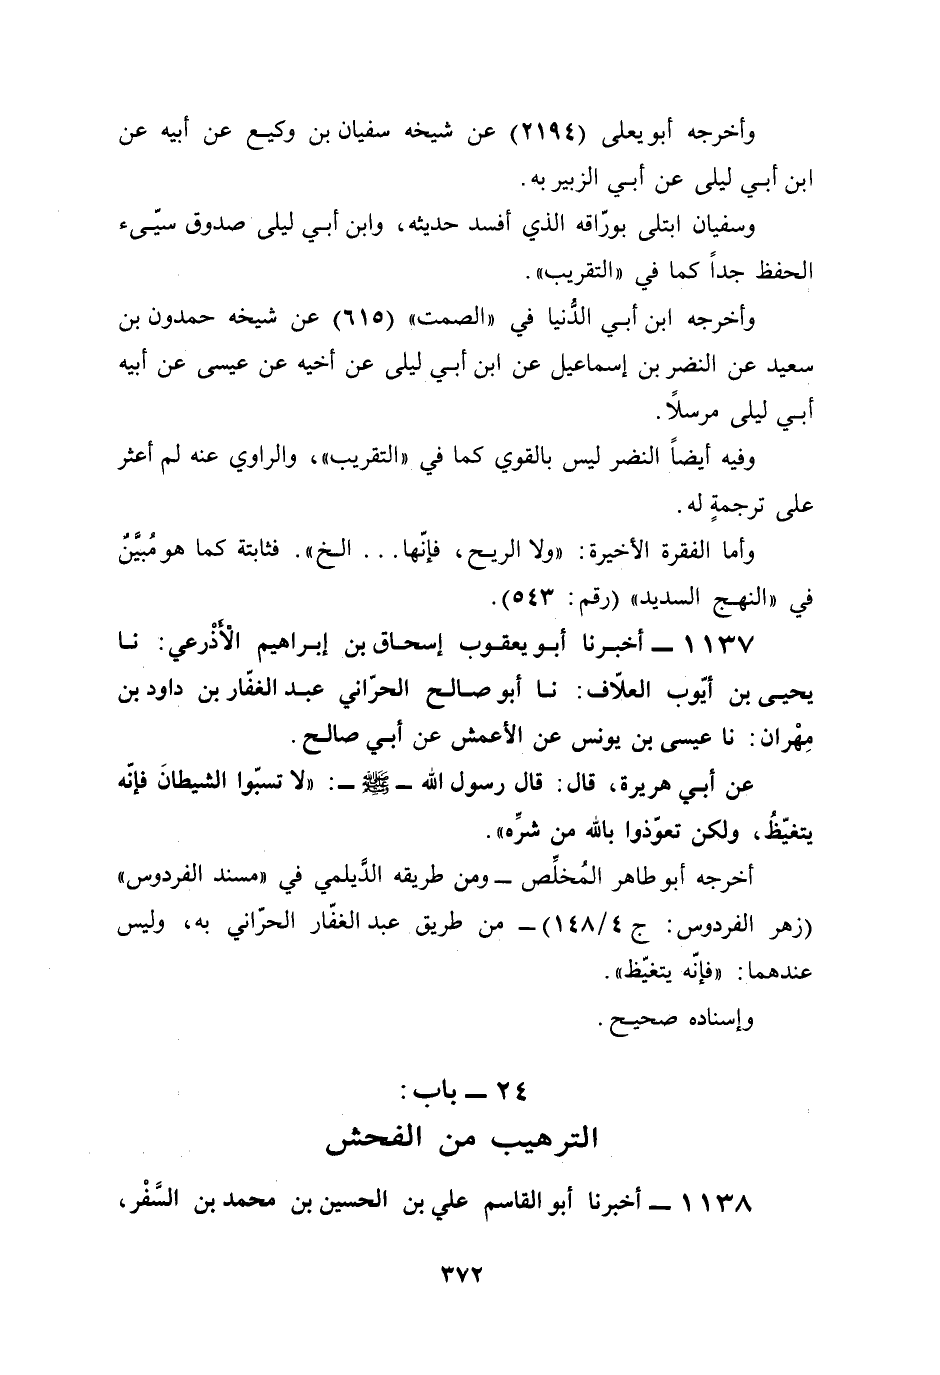 وأخرجه أبو يعلى (٢١٩٤) عن شيخه سفيان بن وكيع عن أبيه عن
ابن أبي ليلى عن أبي الزبير به.
وسفيان ابتلى بورّاقه الذي أفسد حديثه، وابن أبي ليلى صدوق سيّىء
الحفظ جداً كما في «التقريب».
وأخرجه ابن أبي الدُّنيا في «الصمت» (٦١٥) عن شيخه حمدون بن
سعيد عن النضر بن إسماعيل عن ابن أبي ليلى عن أخيه عن عيسى عن أبيه
أبي ليلى مرسلاً.
وفيه أيضاً النضر ليس بالقوي كما في «التقريب»، والراوي عنه لم أعثر
على ترجمةٍ له.
وأما الفقرة الأخيرة: «ولا الريح، فإنّها... الخ». فثابتة كما هو مُبيَّنٌ
في «النهج السديد» (رقم: ٥٤٣).
١١٣٧ ـ أخبرنا أبو يعقوب إسحاق بن إبراهيم الْأَذْرعي: نا
يحيى بن أيّوب العلاّف: نا أبو صالح الحرّاني عبد الغفّار بن داود بن
مِهْران: نا عيسى بن يونس عن الأعمش عن أبي صالح.
عن أبي هريرة، قال: قال رسول الله ـ ﷺ ـ: «لا تسبّوا الشيطانَ فإنّه
يتغيّظُ، ولكن تعوّذوا بالله من شرِّه».
أخرجه أبو طاهر المُخلِّص ـ ومن طريقه الدَّيلمي في «مسند الفردوس»
(زهر الفردوس: ج ٤/١٤٨) ـ من طريق عبد الغفّار الحرّاني به، وليس
عندهما: «فإنّه يتغيّظ».
وإسناده صحيح.
٢٤ ـ باب:
الترهيب من الفحش
١١٣٨ ـ أخبرنا أبو القاسم علي بن الحسين بن محمد بن السَّفْر،
٣٧٢